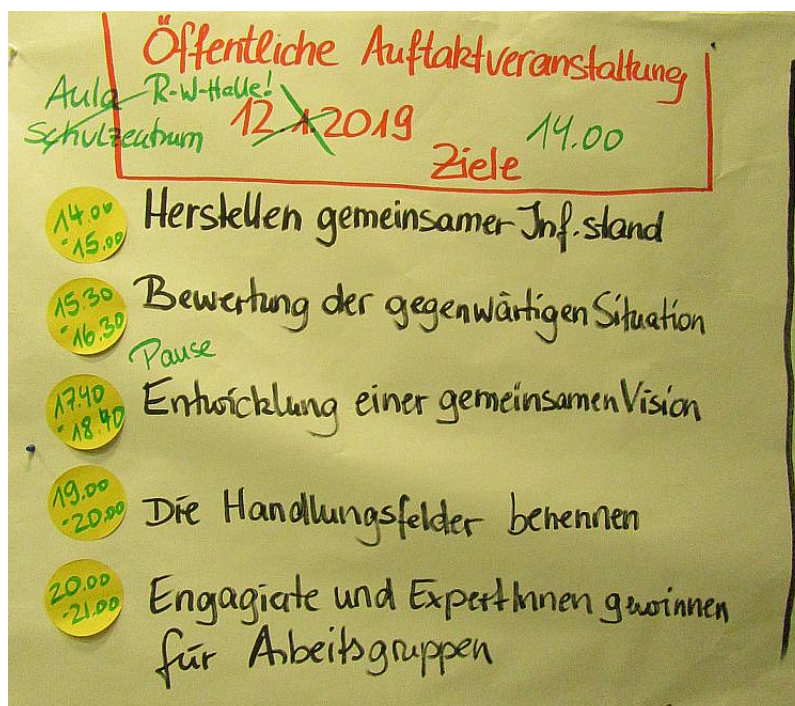 Öffentliche Auftaktveranstaltung
Aula R-W-Halle!
Schulzentrum 12.1.2019 14.00
Ziele
14.00 Herstellen gemeinsamer Inf.stand
-15.00
15.30 Bewertung der gegenwärtigen Situation
-16.30
Pause
17.40 Entwicklung einer gemeinsamen Vision
-18.40
19.00 Die Handlungsfelder benennen
-20.00
20.00 Engagierte und ExpertInnen gewinnen
-21.00
für Arbeitsgruppen